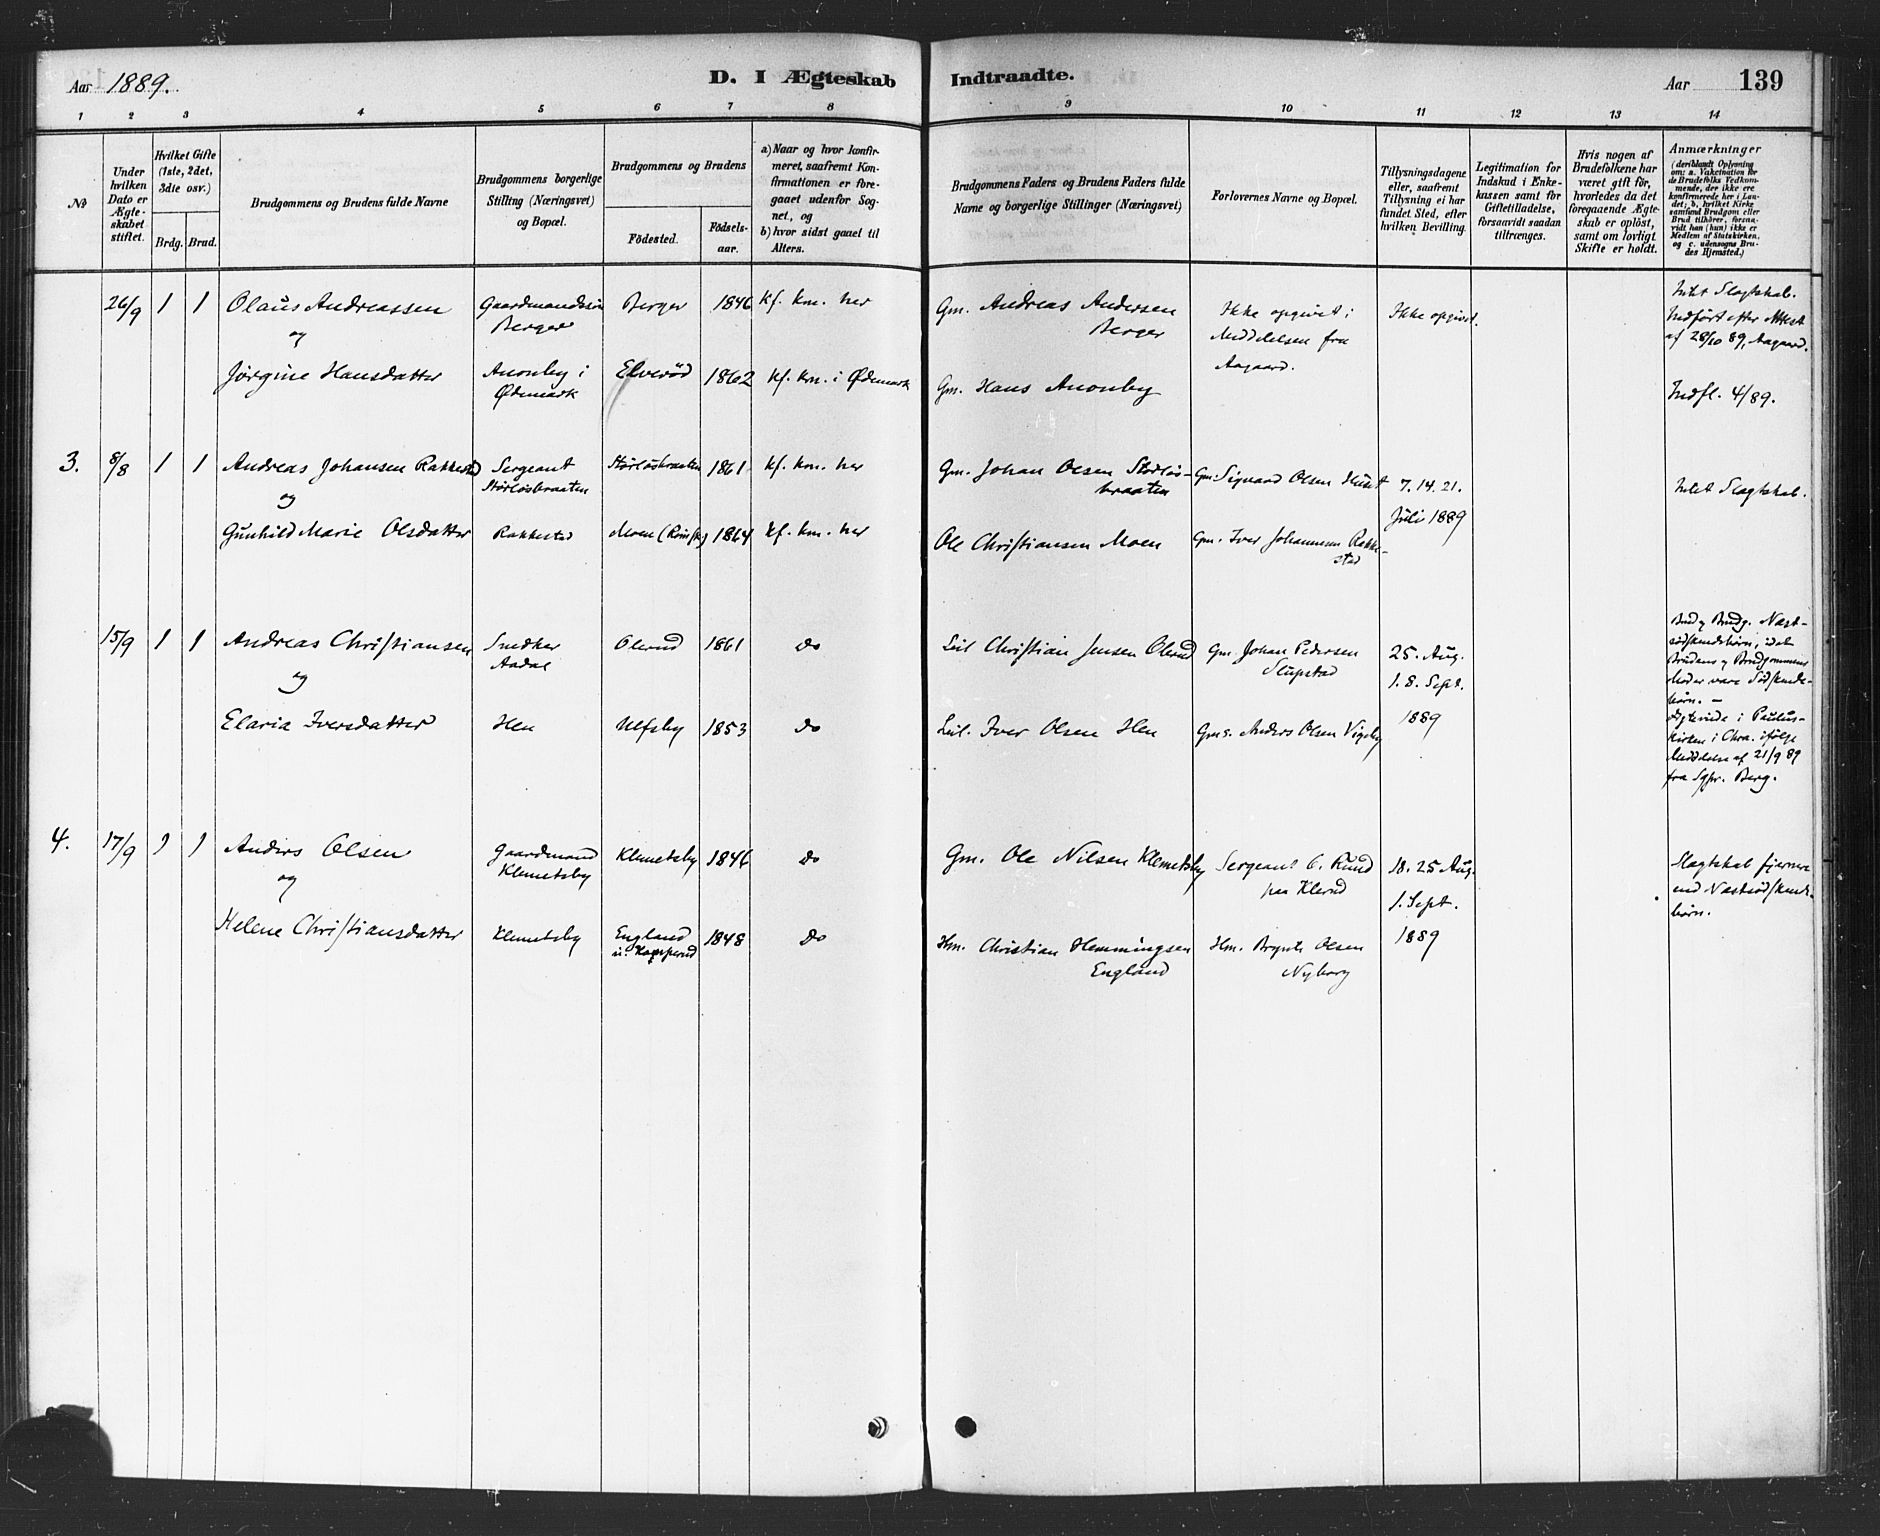 Aar 1889.
D. I Ægteskab Indtraadte.
Aar 139
1 2 3 4 5 6 7 8 9 10 11 12 13 14
№
Under hvilken Dato er Ægte-skabet stiftet.
Hvilket Gifte (1ste, 2det, 3die osv.)
Brdg. Brud.
Brudgommens og Brudens fulde Navne
Brudgommens borgerlige Stilling (Næringsvei) og Bopæl.
Brudgommens og Brudens
Födested.
Födsels-aar.
a) Naar og hvor konfir-meret, saafremt Kon-firmationen er fore-gaaet udenfor Sog-net, og
b) hvor sidst gaaet til Alters.
Brudgommens Faders og Brudens Faders fulde Navne og borgerlige Stillinger (Næringsvei)
Forlovernes Navne og Bopæl.
Tillysningsdagene eller, saafremt Tillysning ei har fundet Sted, efter hvilken Bevilling.
Legitimation for Indskud i Enke-kassen samt for Giftetilladelse, forsaavidt saadan tiltrænges.
Hvis nogen af Brudefolkene har været gift för, hvorledes da det foregaaende Ægte-skab er oplöst, samt om lovligt Skifte er holdt.
Anmærkninger
(deriblandt Oplysning om: a. Vakcination for de Brudefolks Vedkom-mende, der ikke ere konfirmerede her i Lan-det; b, hvilket Kirke samfund Brudgom eller Brud tilhörer, forsaa-vidt han (hun) ikke er Medlem af Statskirken, og c. udensogns Bru-des Hjemsted.)
26/9 1 1 Olaus Andreassen
Gaardmandssøn Berger
Berger 1846 Kf. km. her
Gm. Andreas Andersen Berger
Ikke opgivet i Meddelelsen fra Aagaard.
Ikke opgivet.
Intet Slagtskab. Indført efter Attest af 28/10 89, Aagaard.
og
Jørgine Hansdatter
Anonby i Ødemark
Elverød 1862 Kf. km. i Ødemark
Gm. Hans Anonby
Indfl. 4/89.
3. 8/8 1 1 Andreas Johansen Rakkestad
Sergeant Størløsbraaten
Størløsbraaten 1861 Kf. km. her
Gm. Johan Olsen Størløs-braaten
Gm. Sigvard Olsen
7. 14. 21. Juli 1889
Intet Slagtskab.
og
Gunhild Marie Olsdatter
Rakkestad
Moen 1864 Kf. km. her
Ole Christiansen Moen
Gm. Iver Johannesen Rakke-stad
15/9 1 1 Andreas Christiansen
Snedker Aadal
Olerud 1861 do
Leil. Christian Jensen Olerud
Gm. Johan Pedersen Slupstad
25. Aug. 1. 8. Sept. 1889
Brud og Brudg. Næst-sødskendebørn, idet Brudens og Brudgommens Moder vare Sødskende-børn. –
Ægteviede i Paulus-kirken i Chra. ifølge Meddelelse af 21/9 89 fra Sgpr. Berg.
og
Elaria Iversdatter
Hen
Ulfsby 1853 do
Leil. Iver Olsen Hen
Gms. Anders Olsen Vigsby
4. 17/9 1 1 Anders Olsen
Gaardmand Klemetsby
Klemetsby 1846 do
Gm. Ole Nilsen Klemetsby
Sergeant C. Ruud paa Klerud
18. 25 Aug. 1. Sept. 1889
Slagtskab fjernere end Næstsødskende-børn.
og
Helene Christiansdatter
Klemetsby
England u. Kasperud
1848 do
Hm. Christian Hemmingsen England
Hm. Brynte Olsen Nyborg